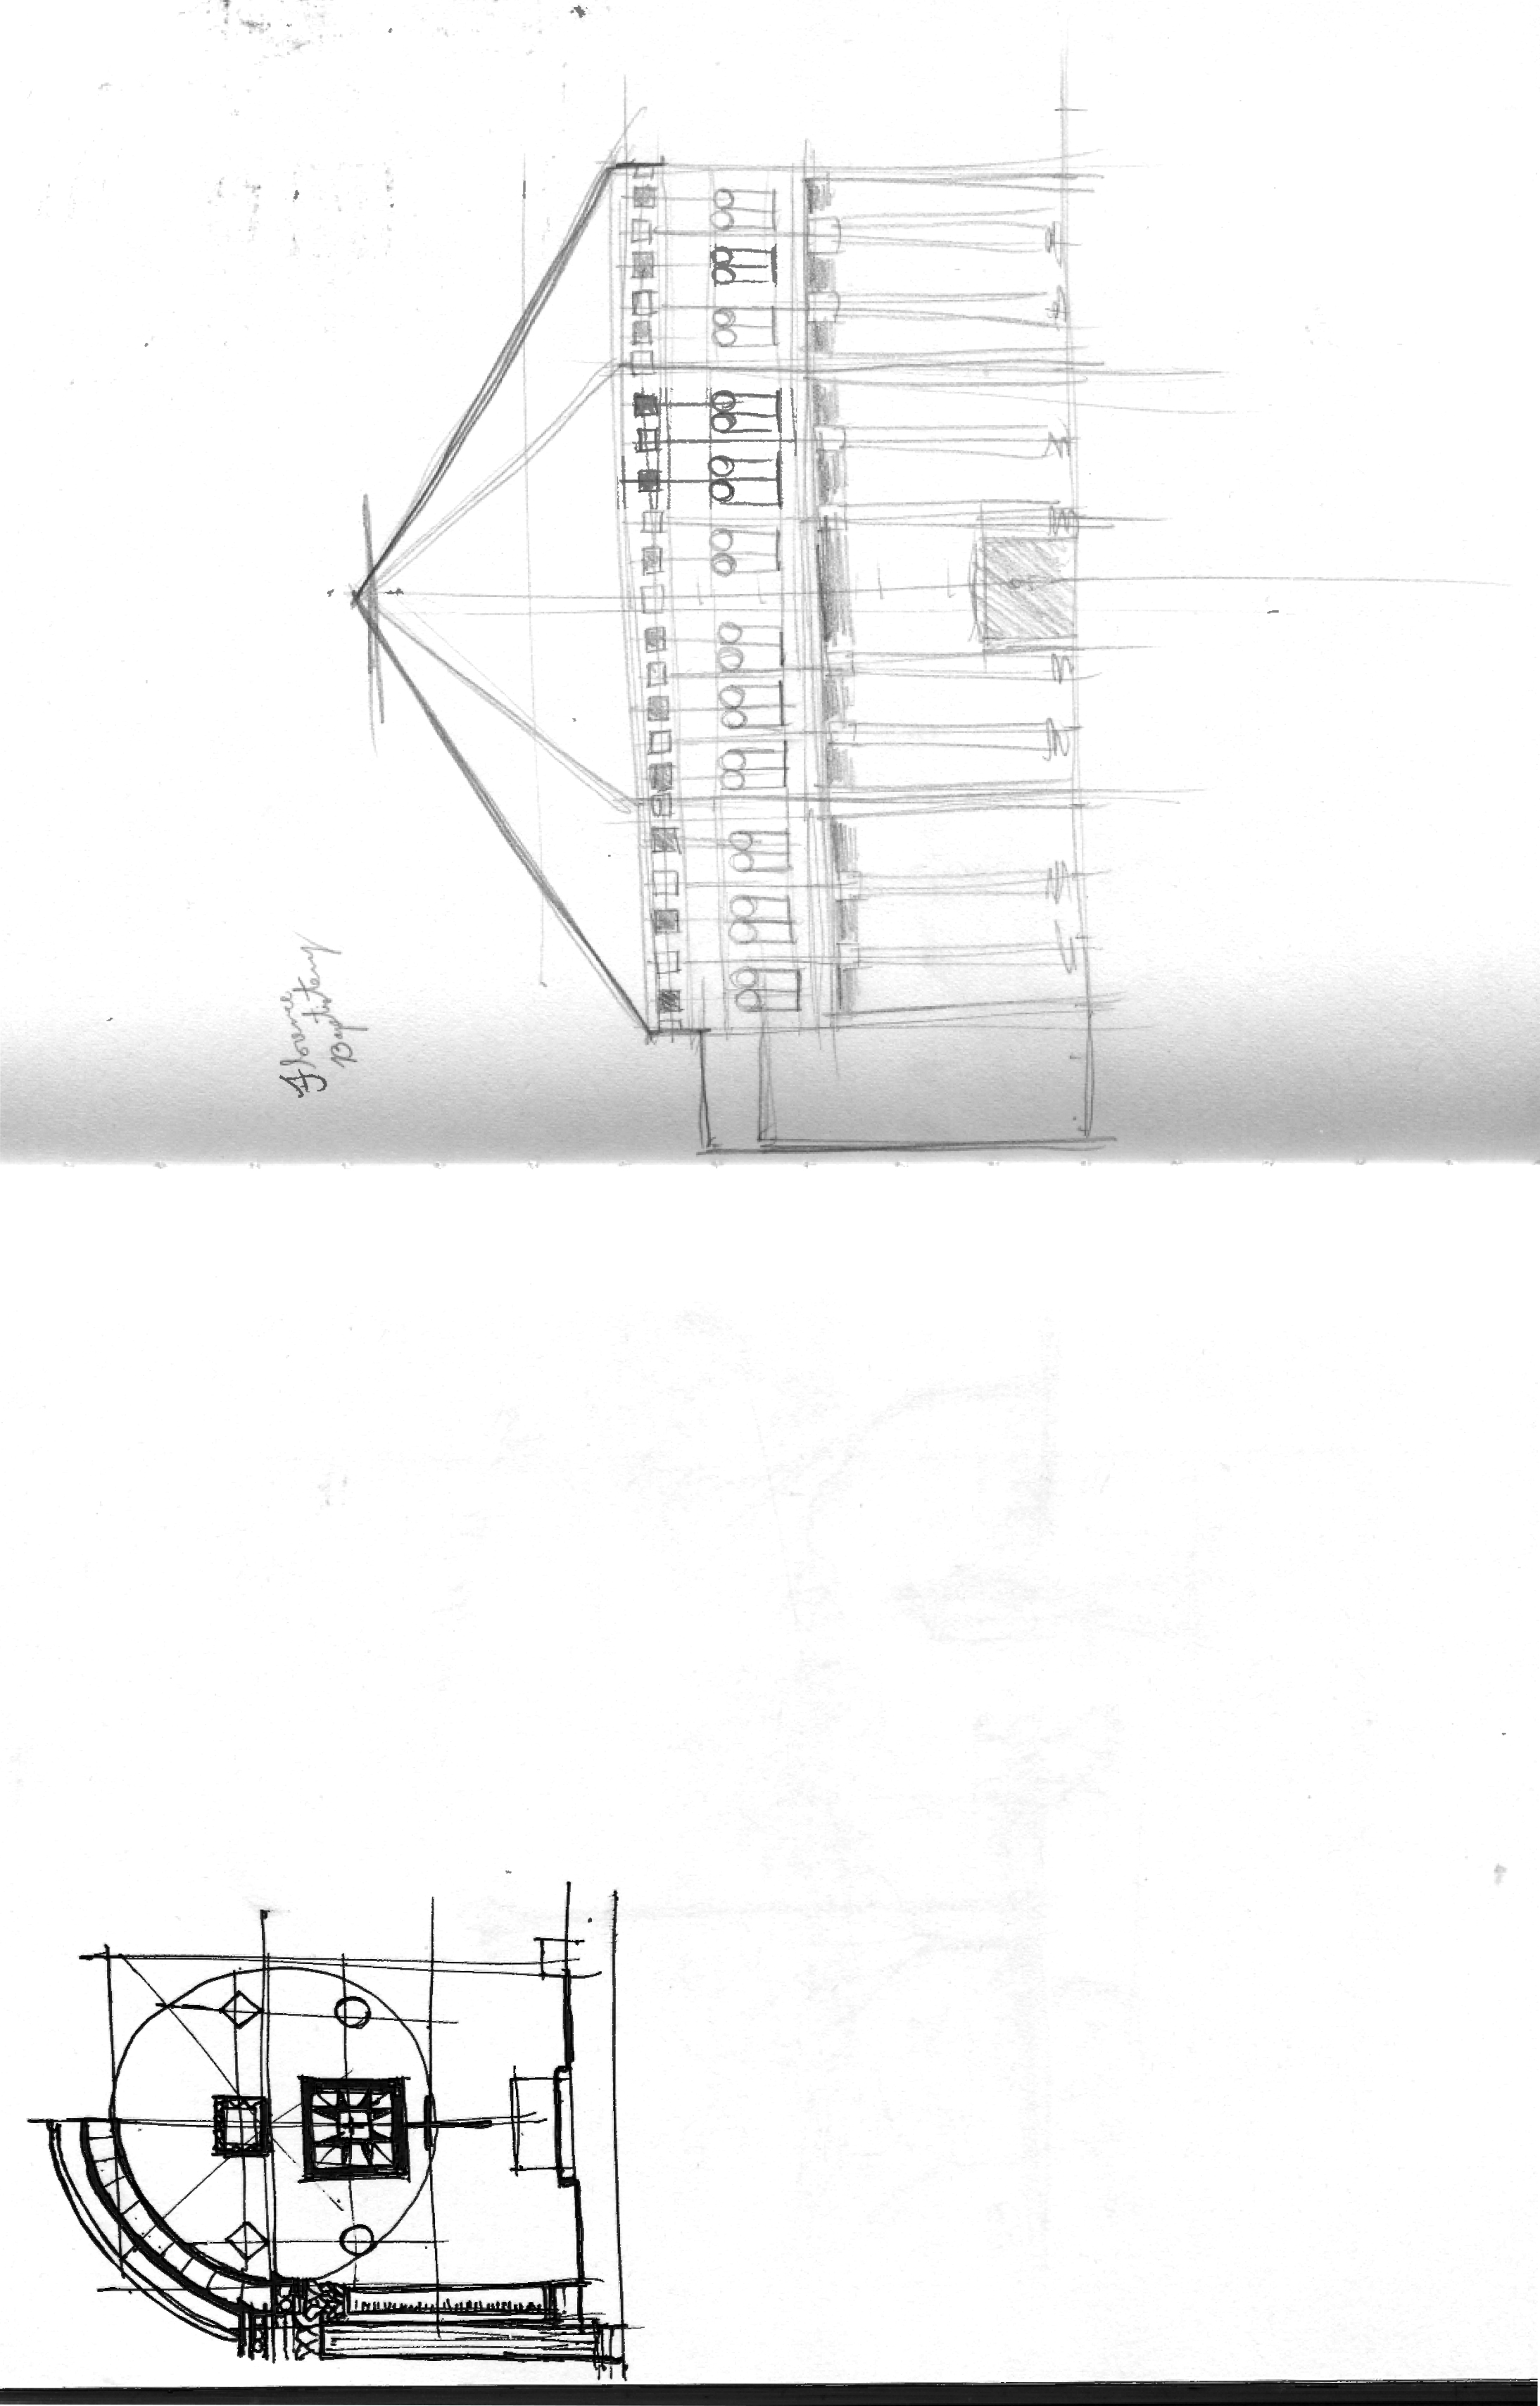 Florence
Baptistery